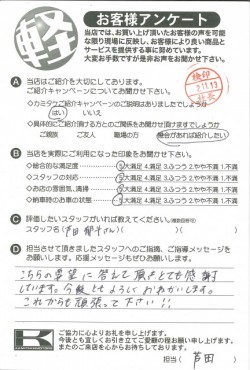 軽
お客様アンケート
当店では、お買い上げ頂いたお客様の声を可能
な限り現場に反映し、お客様により良い商品と
サービスを提供する事に努めています。
大変お手数ですが是非お声をお聞かせ下さい。
A 当店はご紹介を大切にしてあります。
ご紹介キャンペーンについてお聞かせ下さい
・カミタケご紹介キャンペーンのご説明はありましたでしょうか
はい いいえ
・具体的にご紹介頂ける方とのご関係をお聞かせ頂けますでしょうか
ご親族 ご友人 職場の方 機会があれば紹介したい
B 当店を実際にご利用になった印象をお聞かせ下さい。
・総合的な満足度 5大満足 4.満足 3.ふつう 2.やや不満 1.不満
・スタッフの対応 5大満足 4.満足 3.ふつう 2.やや不満 1.不満
・お店の雰囲気、清掃 5大満足 4.満足 3.ふつう 2.やや不満 1.不満
・納車時のお車の状態 5大満足 4.満足 3.ふつう 2.やや不満 1.不満
C 評価したいスタッフがいれば教えてください。(複数回答可)
スタッフ名( 芦田 さん)
D 担当させて頂きましたスタッフへのご指摘、ご指導メッセージを
お願いします。応援メッセージもぜひお願いします。
こちらの要望に答えて頂きとても感謝
しています。今後ともよろしくおねがいします。
これからも頑張って下さい!!
K
ご協力に心よりお礼を申し上げます。
今後とも宜しくお引き立てご愛顧の程お願い申し上げます。
またのご来店を心からお待ちしております。
担当( 芦田 )